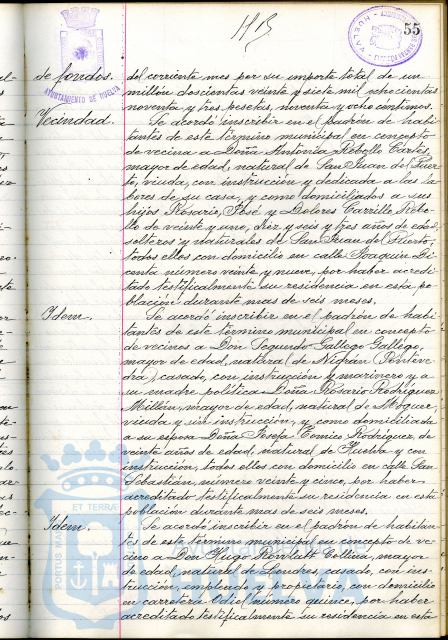 55
AYUNTAMIENTO DE HUELVA
de fondos.
del corriente mes por su importe total de un
millón doscientas veinte y siete mil ochocientas
noventa y tres pesetas, noventa y ocho céntimos.
Vecindad.
Se acordó inscribir en el padrón de habi-
tantes de este término municipal en concepto
de vecina a Doña Antonia Rebollo Cartes,
mayor de edad, natural de San Juan del Puer-
to, viuda, con instrucción y dedicada a las la-
bores de su casa, y como domiciliados a sus
hijos Rosario, José y Dolores Carrillo Rebo-
llo de veinte y uno, diez y seis y tres años de edad,
solteros y naturales de San Juan del Puerto,
todos ellos con domicilio en calle Joaquín Di-
centa número veinte y nueve, por haber acredi-
tado testificalmente su residencia en esta po-
blación durante mas de seis meses.
Idem.
Se acordó inscribir en el padrón de habi-
tantes de este término municipal en concepto
de vecinos a Don Segundo Gallego Gallego,
mayor de edad, natural de Nigrán (Ponteve-
dra), casado, con instrucción y marinero y a
su madre política Doña Rosario Rodríguez
Millán, mayor de edad, natural de Moguer,
viuda y sin instrucción, y como domiciliada
a su esposa Doña Josefa Rodríguez, de
veinte años de edad, natural de Huelva y con
instrucción, todos ellos con domicilio en calle San
Sebastián, número veinte y cinco, por haber
acreditado testificalmente su residencia en esta
población durante mas de seis meses.
Idem.
Se acordó inscribir en el padrón de habitan-
tes de este término municipal en concepto de ve-
cino a Don Hugo Collins, mayor
de edad, natural de Londres, casado, con ins-
trucción, empleado y propietario, con domicilio
en carretera Odiel número quince, por haber
acreditado testificalmente su residencia en esta
PORTUS MARIS ET TERRAE
HUELVA